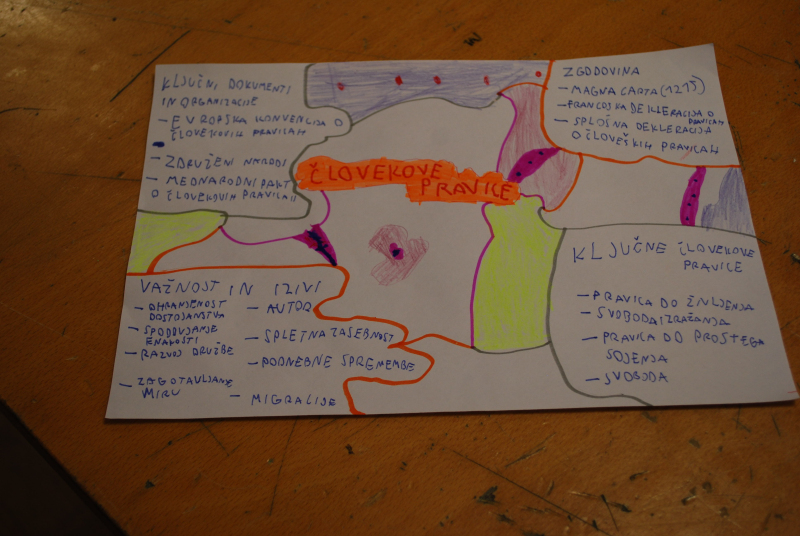 KLJUČNI DOKUMENTI
IN ORGANIZACIJE
- EVROPSKA KONVENCIJA O
ČLOVEKOVIH PRAVICAH
- ZDRUŽENI NARODI
- MEDNARODNI PAKT
O ČLOVEKOVIH PRAVICAH
ČLOVEKOVE
PRAVICE
ZGODOVINA
- MAGNA CARTA (1215)
- FRANCOSKA DEKLERACIJA O
PRAVICAH
- SPLOŠNA DEKLERACIJA
O ČLOVEŠKIH PRAVICAH
VAŽNOST IN IZIVI
- OHRANJENOST
DOSTOJANSTVA
- SPODBUJANJE
ENAKOSTI
- RAZVOJ DRUŽBE
- ZAGOTAVLJANJE
MIRU
- SPLETNA ZASEBNOST
- PODNEBNE SPREMEMBE
- MIGRACIJE
KLJUČNE ČLOVEKOVE
PRAVICE
- PRAVICA DO ŽIVLJENJA
- SVOBODA IZRAŽANJA
- PRAVICA DO PROSTEGA
SOJENJA
- SVOBODA